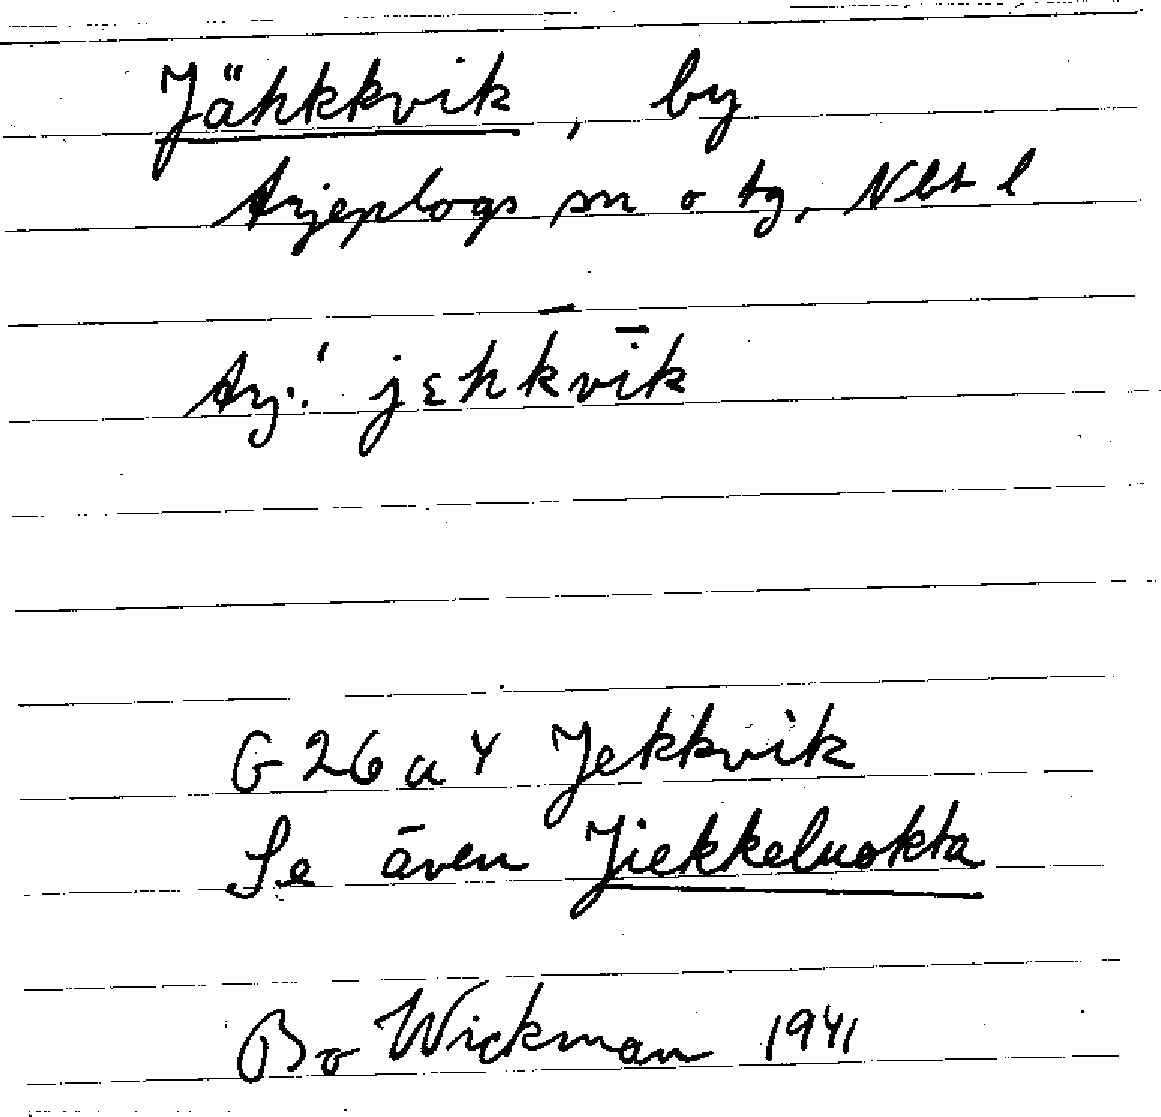 Jähkkvik, by
Arjeplogs sn o tg, Nbt l
Arj.: ′jɛhk̄vīk
G 26 a 4 Jekkvik
Se även Jiekkeluokta
Bo Wickman 1941